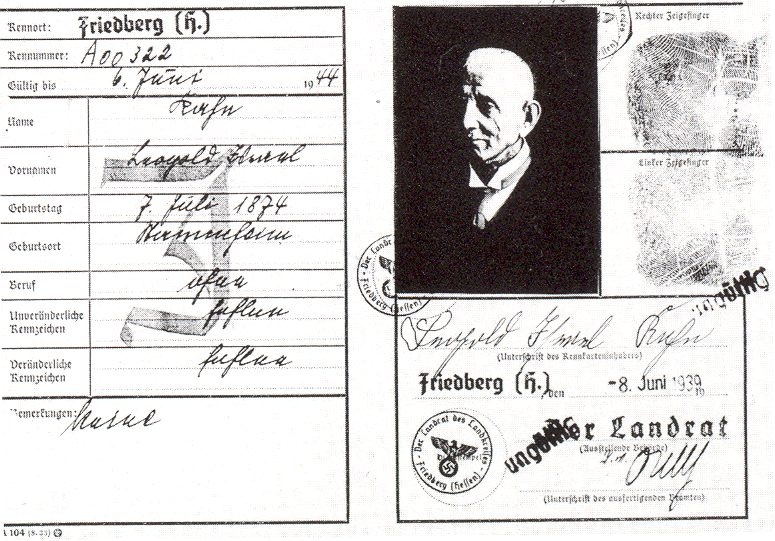 Kennort: Friedberg (H.)
Kennummer: A00322
Gültig bis 6. Juni 1944
Name Kahn
Vornamen Leopold Israel
Geburtstag 7. Juli 1874
Geburtsort
Beruf ohne
Unveränderliche Kennzeichen fehlen
Veränderliche Kennzeichen fehlen
Bemerkungen: keine
A 104 (8. 38)
J
Rechter Zeigefinger
Linker Zeigefinger
ungültig
Der Landrat des Landkreises Friedberg (Hessen)
Leopold Israel Kahn
(Unterschrift des Kennkarteninhabers)
Friedberg (H.) den -8. Juni 1939
19
Der Landrat
ungültig
(Ausstellende Behörde)
Der Landrat des Landkreises Friedberg (Hessen)
(Unterschrift des ausfertigenden Beamten)